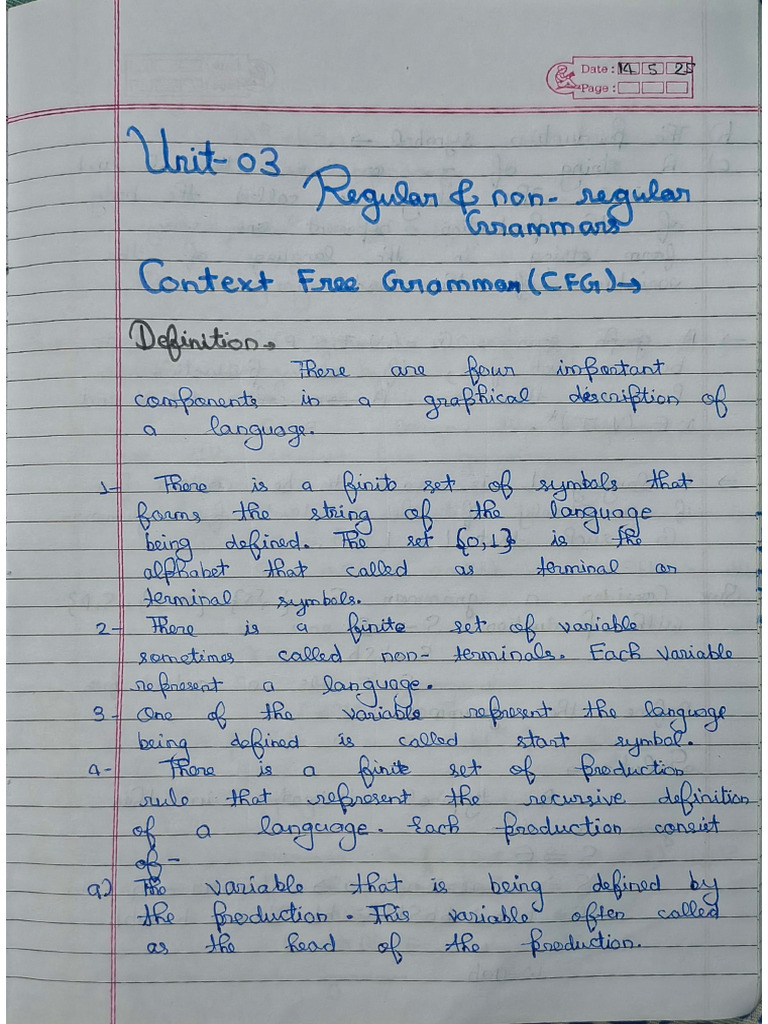 Date: 14 5 25
Page:
Unit-03
Regular & non-regular
Grammars
Context Free Grammar (CFG)→
Definition→
There are four important
components in a graphical description of
a language.
1- There is a finite set of symbols that
forms the string of the language
being defined. The set {0,1} is the
alphabet that called as terminal or
terminal symbols.
2- There is a finite set of variable
sometimes called non-terminals. Each variable
represent a language.
3- One of the variable represent the language
being defined is called start symbol.
4- There is a finite set of production
rule that represent the recursive definition
of a language. Each production consist
of -
a) The variable that is being defined by
the production. This variable often called
as the head of the production.